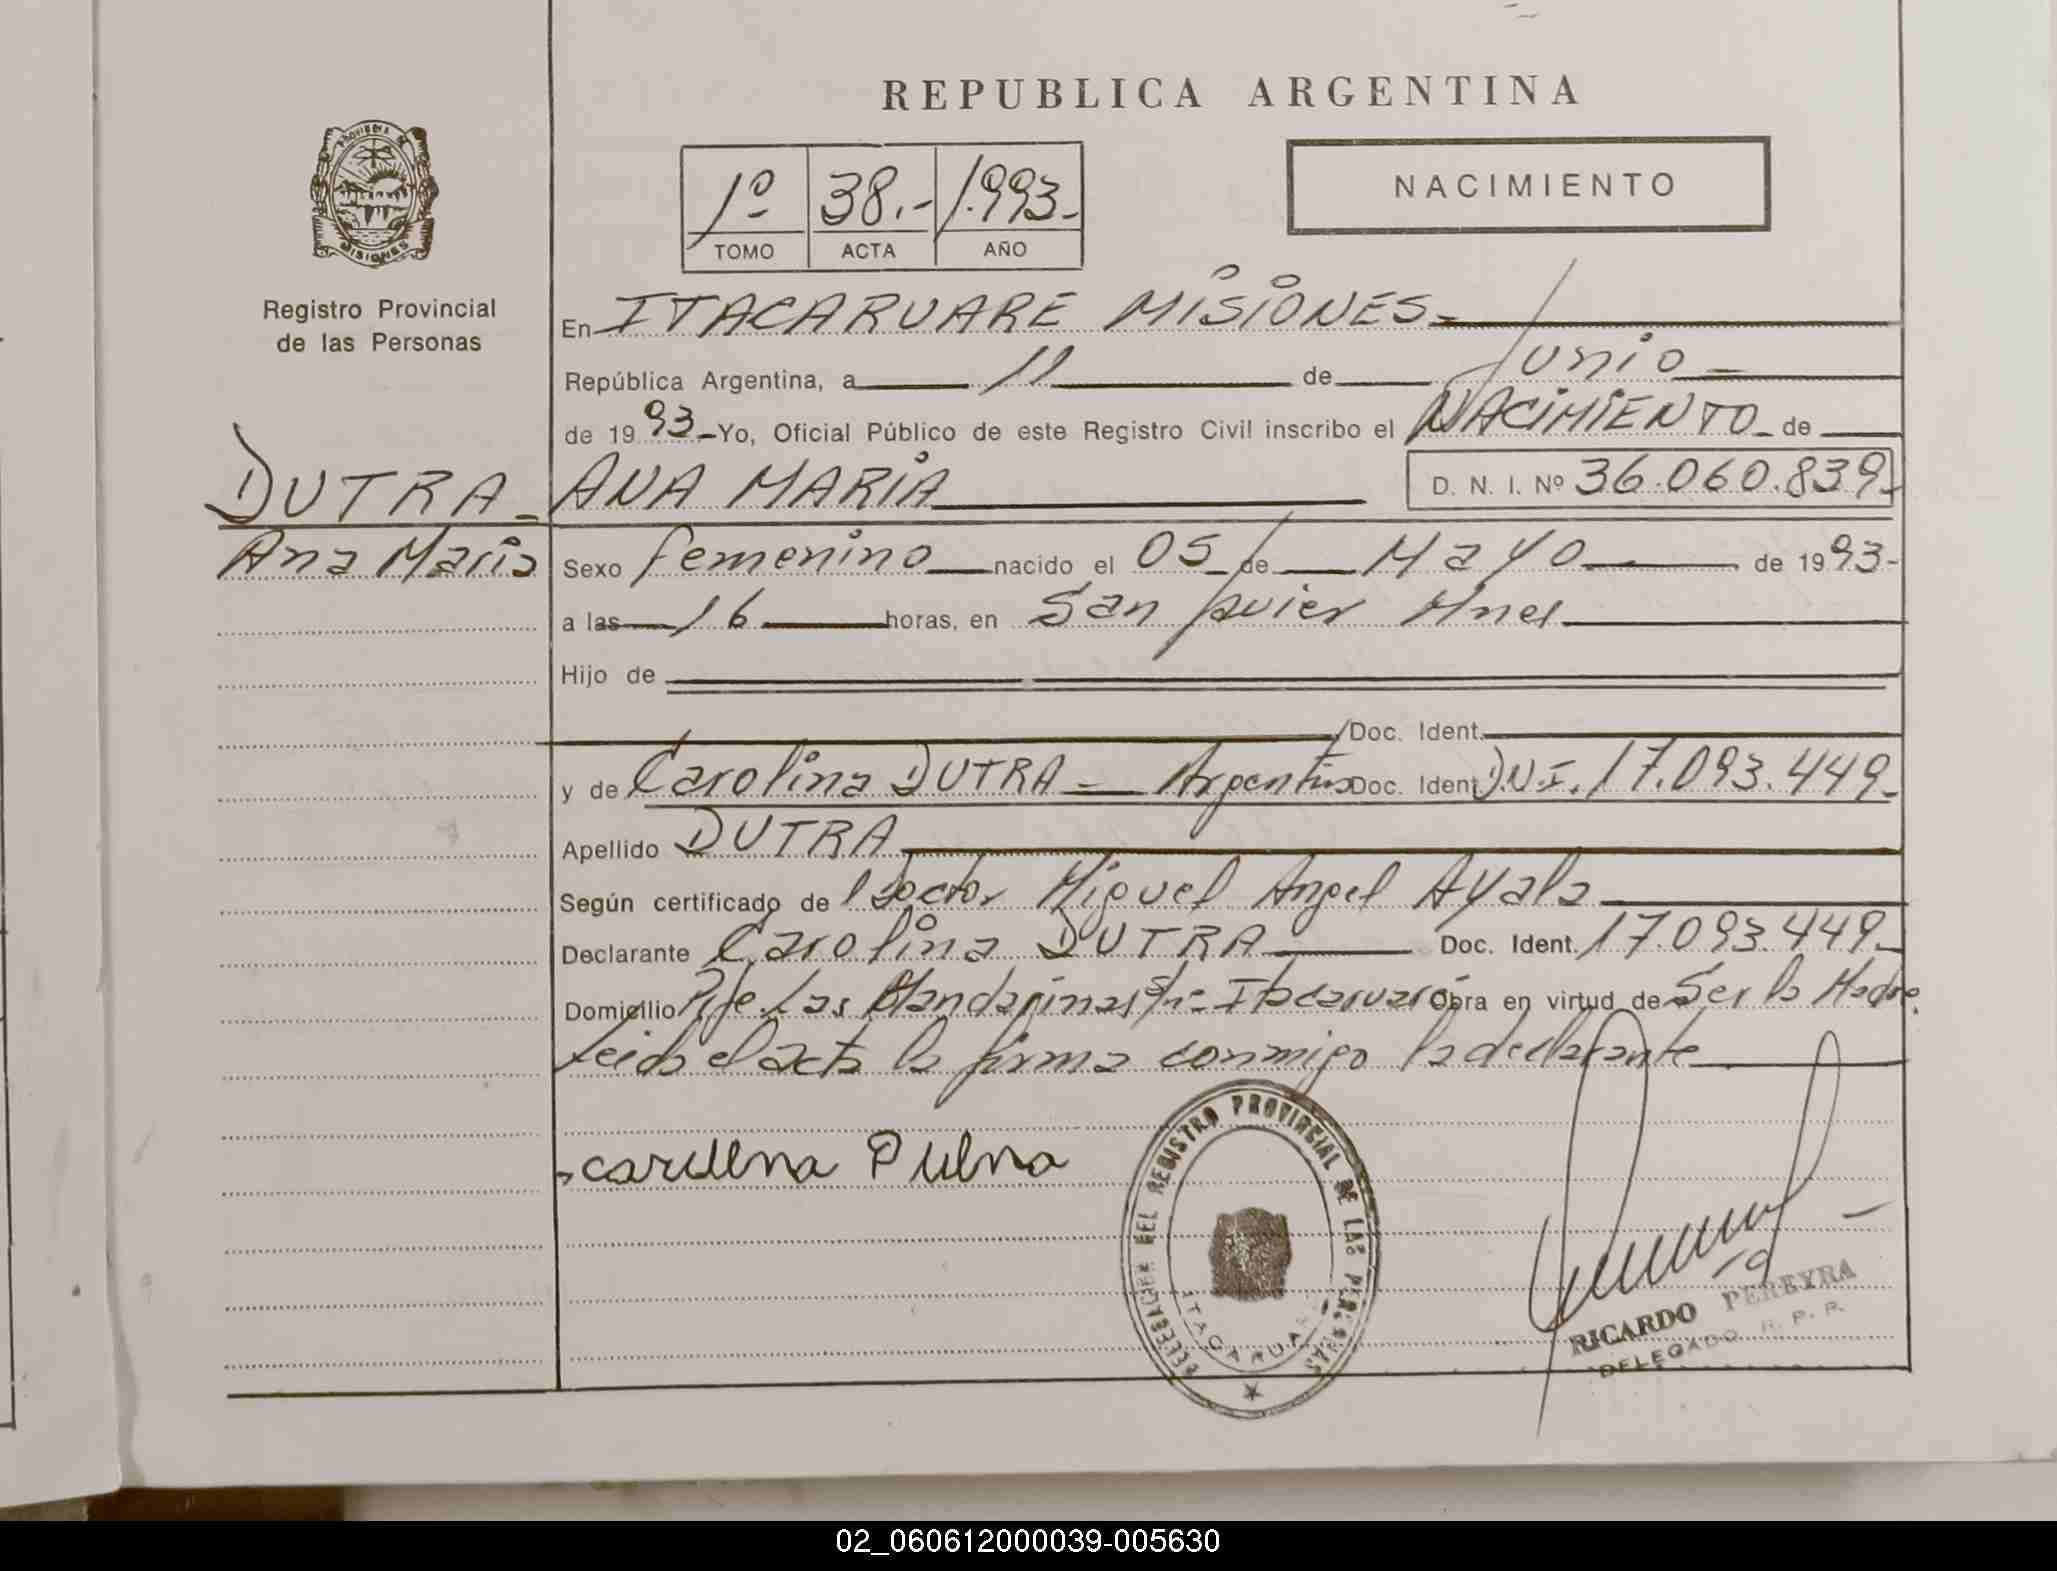 REPUBLICA ARGENTINA
PROVINCIA DE MISIONES
1º 38.- 1.993-
TOMO ACTA AÑO
NACIMIENTO
Registro Provincial
de las Personas
En ITACARUARE MISIONES-
República Argentina, a 11 de Junio
de 1993 Yo, Oficial Público de este Registro Civil inscribo el NACIMIENTO de
DUTRA - ANA MARIA D. N. I. Nº 36.060.839-
Ana Maria
Sexo femenino nacido el 05 de Mayo de 1993-
a las 16 horas, en San Javier Mnes
Hijo de
Doc. Ident.
y de Carolina DUTRA - Argentina Doc. Ident D.N.I. 17.093.449-
Apellido DUTRA
Según certificado de Doctor Miguel Angel Ayala
Declarante Carolina DUTRA Doc. Ident. 17.093.449-
Domicilio Pje. Las Mandarinas s/nº Itacaruaré Obra en virtud de Ser la Madre.
Leida el acta la firma conmigo la declarante
DELEGACION DEL REGISTRO PROVINCIAL DE LAS PERSONAS
ITACARUARE
RICARDO PEREYRA
DELEGADO R. P. P.
02_060612000039-005630